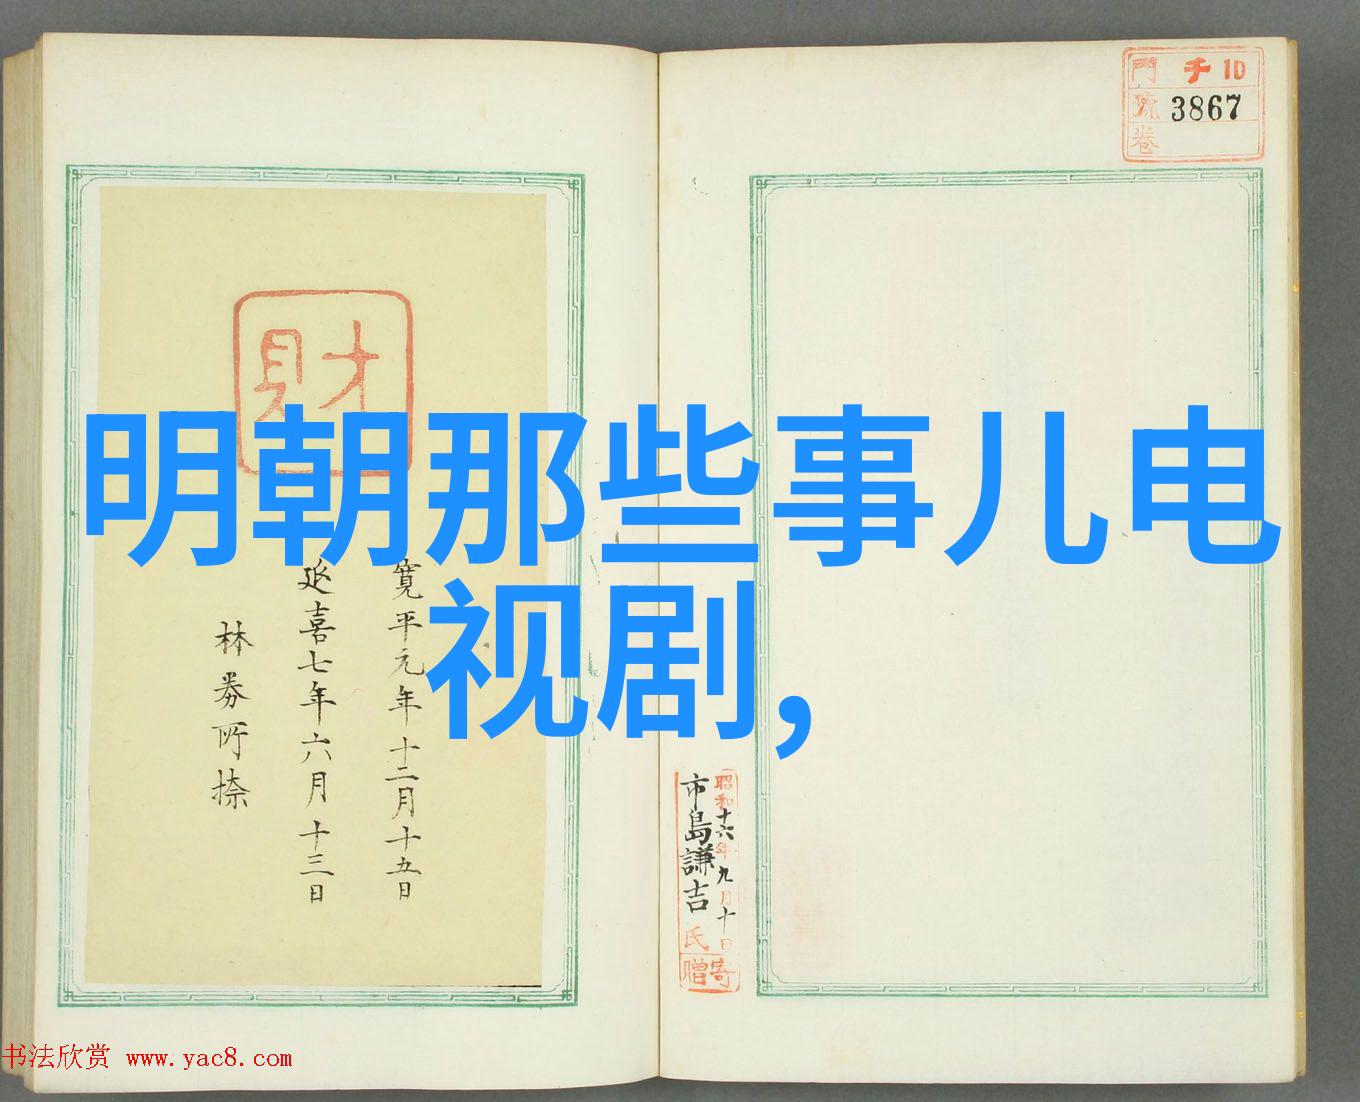 門 千 10
號 3867
卷
財
明朝那些事儿电
视剧，
寛平元年十二月十五日
延喜七年六月十三日
林券所捺
昭和十六年九月十日
市島謙吉氏
寄贈
书法欣赏 www.yac8.com